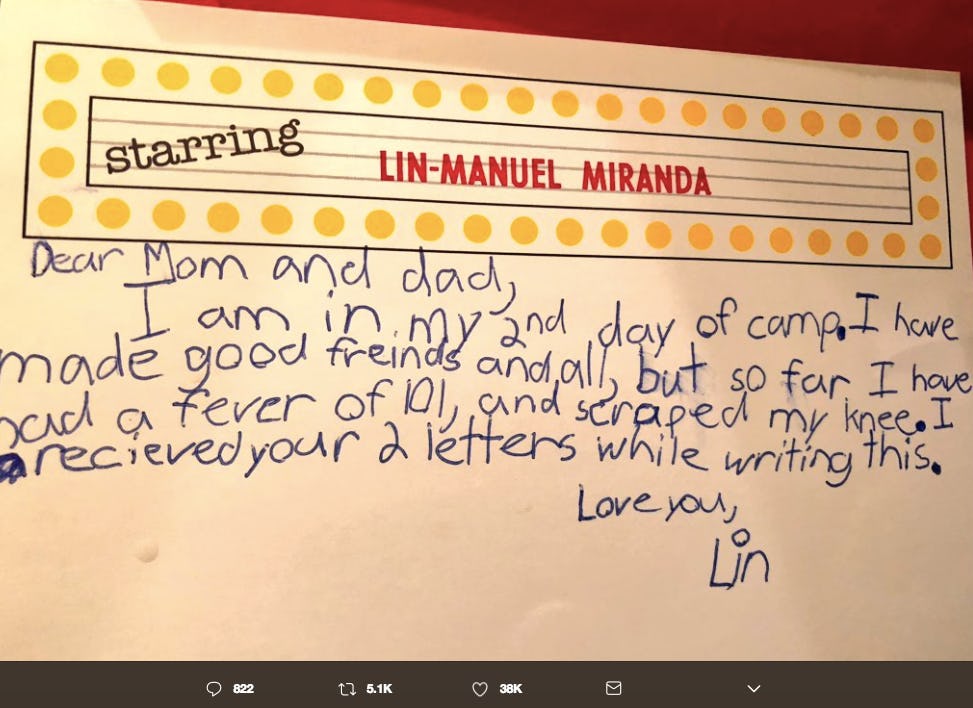 starring LIN-MANUEL MIRANDA
Dear Mom and dad,
I am in my 2nd day of camp. I have
made good freinds and all, but so far I have
had a fever of 101, and scraped my knee. I
recieved your 2 letters while writing this.
Love you,
Lin
822 5.1K 38K